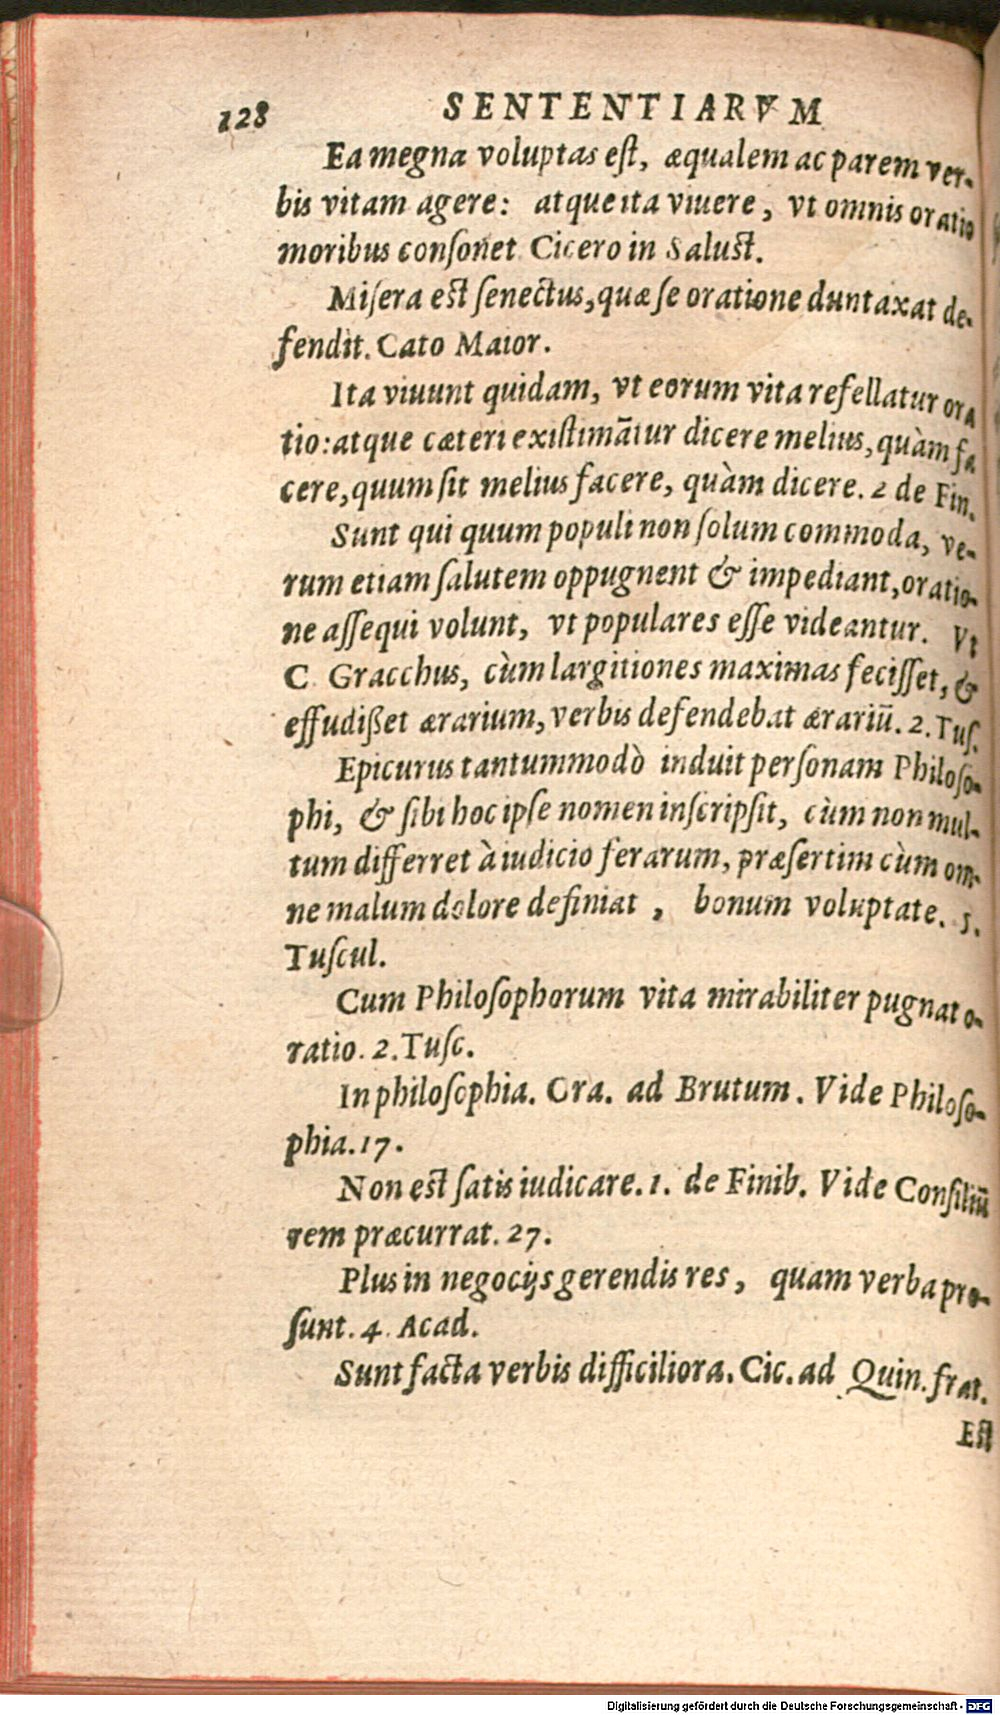 128 SENTENTIARVM
Ea megna voluptas eſt, æqualem ac parem ver-
bis vitam agere: atque ita viuere, vt omnis oratio
moribus conſonet Cicero in Saluſt.
Miſera eſt ſenectus, quæ ſe oratione duntaxat de-
fendit. Cato Maior.
Ita viuunt quidam, vt eorum vita refellatur ora
tio: atque cæteri exiſtimātur dicere melius, quàm fa
cere, quum ſit melius facere, quàm dicere. 2 de Fin.
Sunt qui quum populi non ſolum commoda, ve-
rum etiam ſalutem oppugnent & impediant, oratio-
ne aſſequi volunt, vt populares eſſe videantur. Vt
C. Gracchus, cùm largitiones maximas feciſſet, &
effudißet ærarium, verbis defendebat ærariū. 2. Tuſ.
Epicurus tantummodò induit perſonam Philoſo-
phi, & ſibi hoc ipſe nomen inſcripſit, cùm non mul-
tum differret à iudicio ferarum, præſertim cùm om-
ne malum dolore definiat, bonum voluptate. 5.
Tuſcul.
Cum Philoſophorum vita mirabiliter pugnat o-
ratio. 2. Tuſc.
In philoſophia. Ora. ad Brutum. Vide Philoſo-
phia. 17.
Non eſt ſatis iudicare. 1. de Finib. Vide Conſiliū
rem præcurrat. 27.
Plus in negocijs gerendis res, quam verba pro-
ſunt. 4. Acad.
Sunt facta verbis difficiliora. Cic. ad Quin. frat.
Eſt
Digitalisierung gefördert durch die Deutsche Forschungsgemeinschaft - DFG